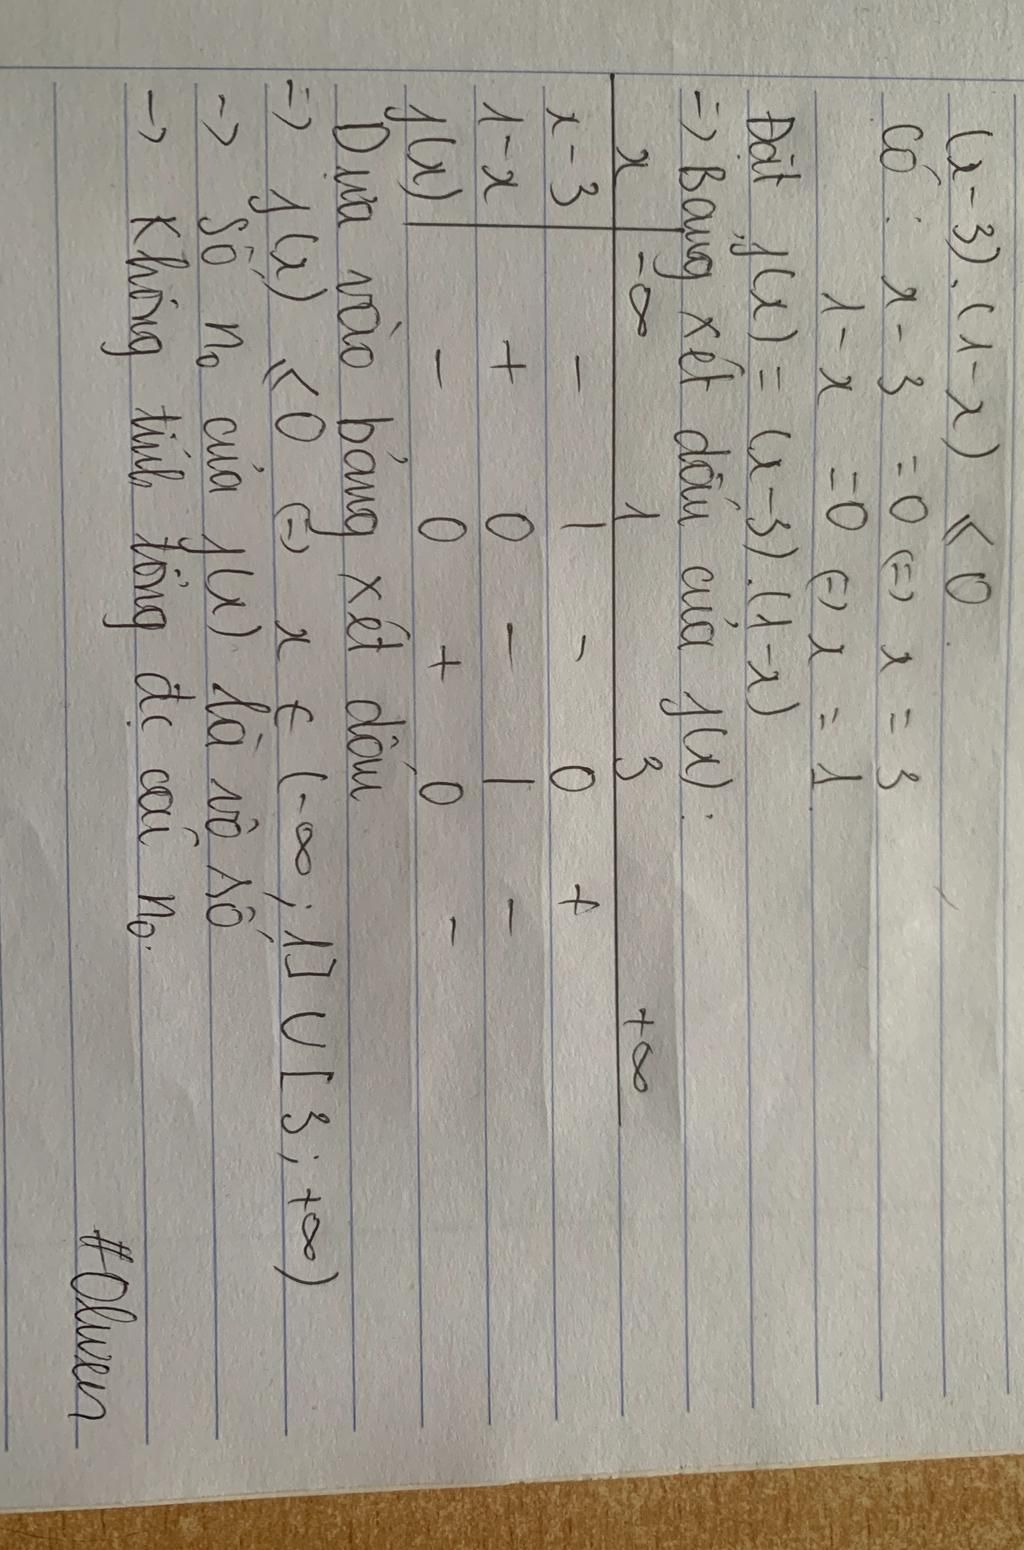 (x-3).(1-x) ≤ 0.
Có: x-3 =0 (=) x = 3
1-x =0 (=) x = 1
Đặt f(x) = (x-3).(1-x)
=> Bảng xét dấu của f(x):
x -∞ 1 3 +∞
x-3 - | - 0 +
1-x + 0 - | -
f(x) - 0 + 0 -
Dựa vào bảng xét dấu
=> f(x) ≤ 0 (=) x ∈ (-∞; 1] ∪ [3; +∞)
-> Số no của f(x) là vô số
-> Không tính tổng đc các no.
#Olwen